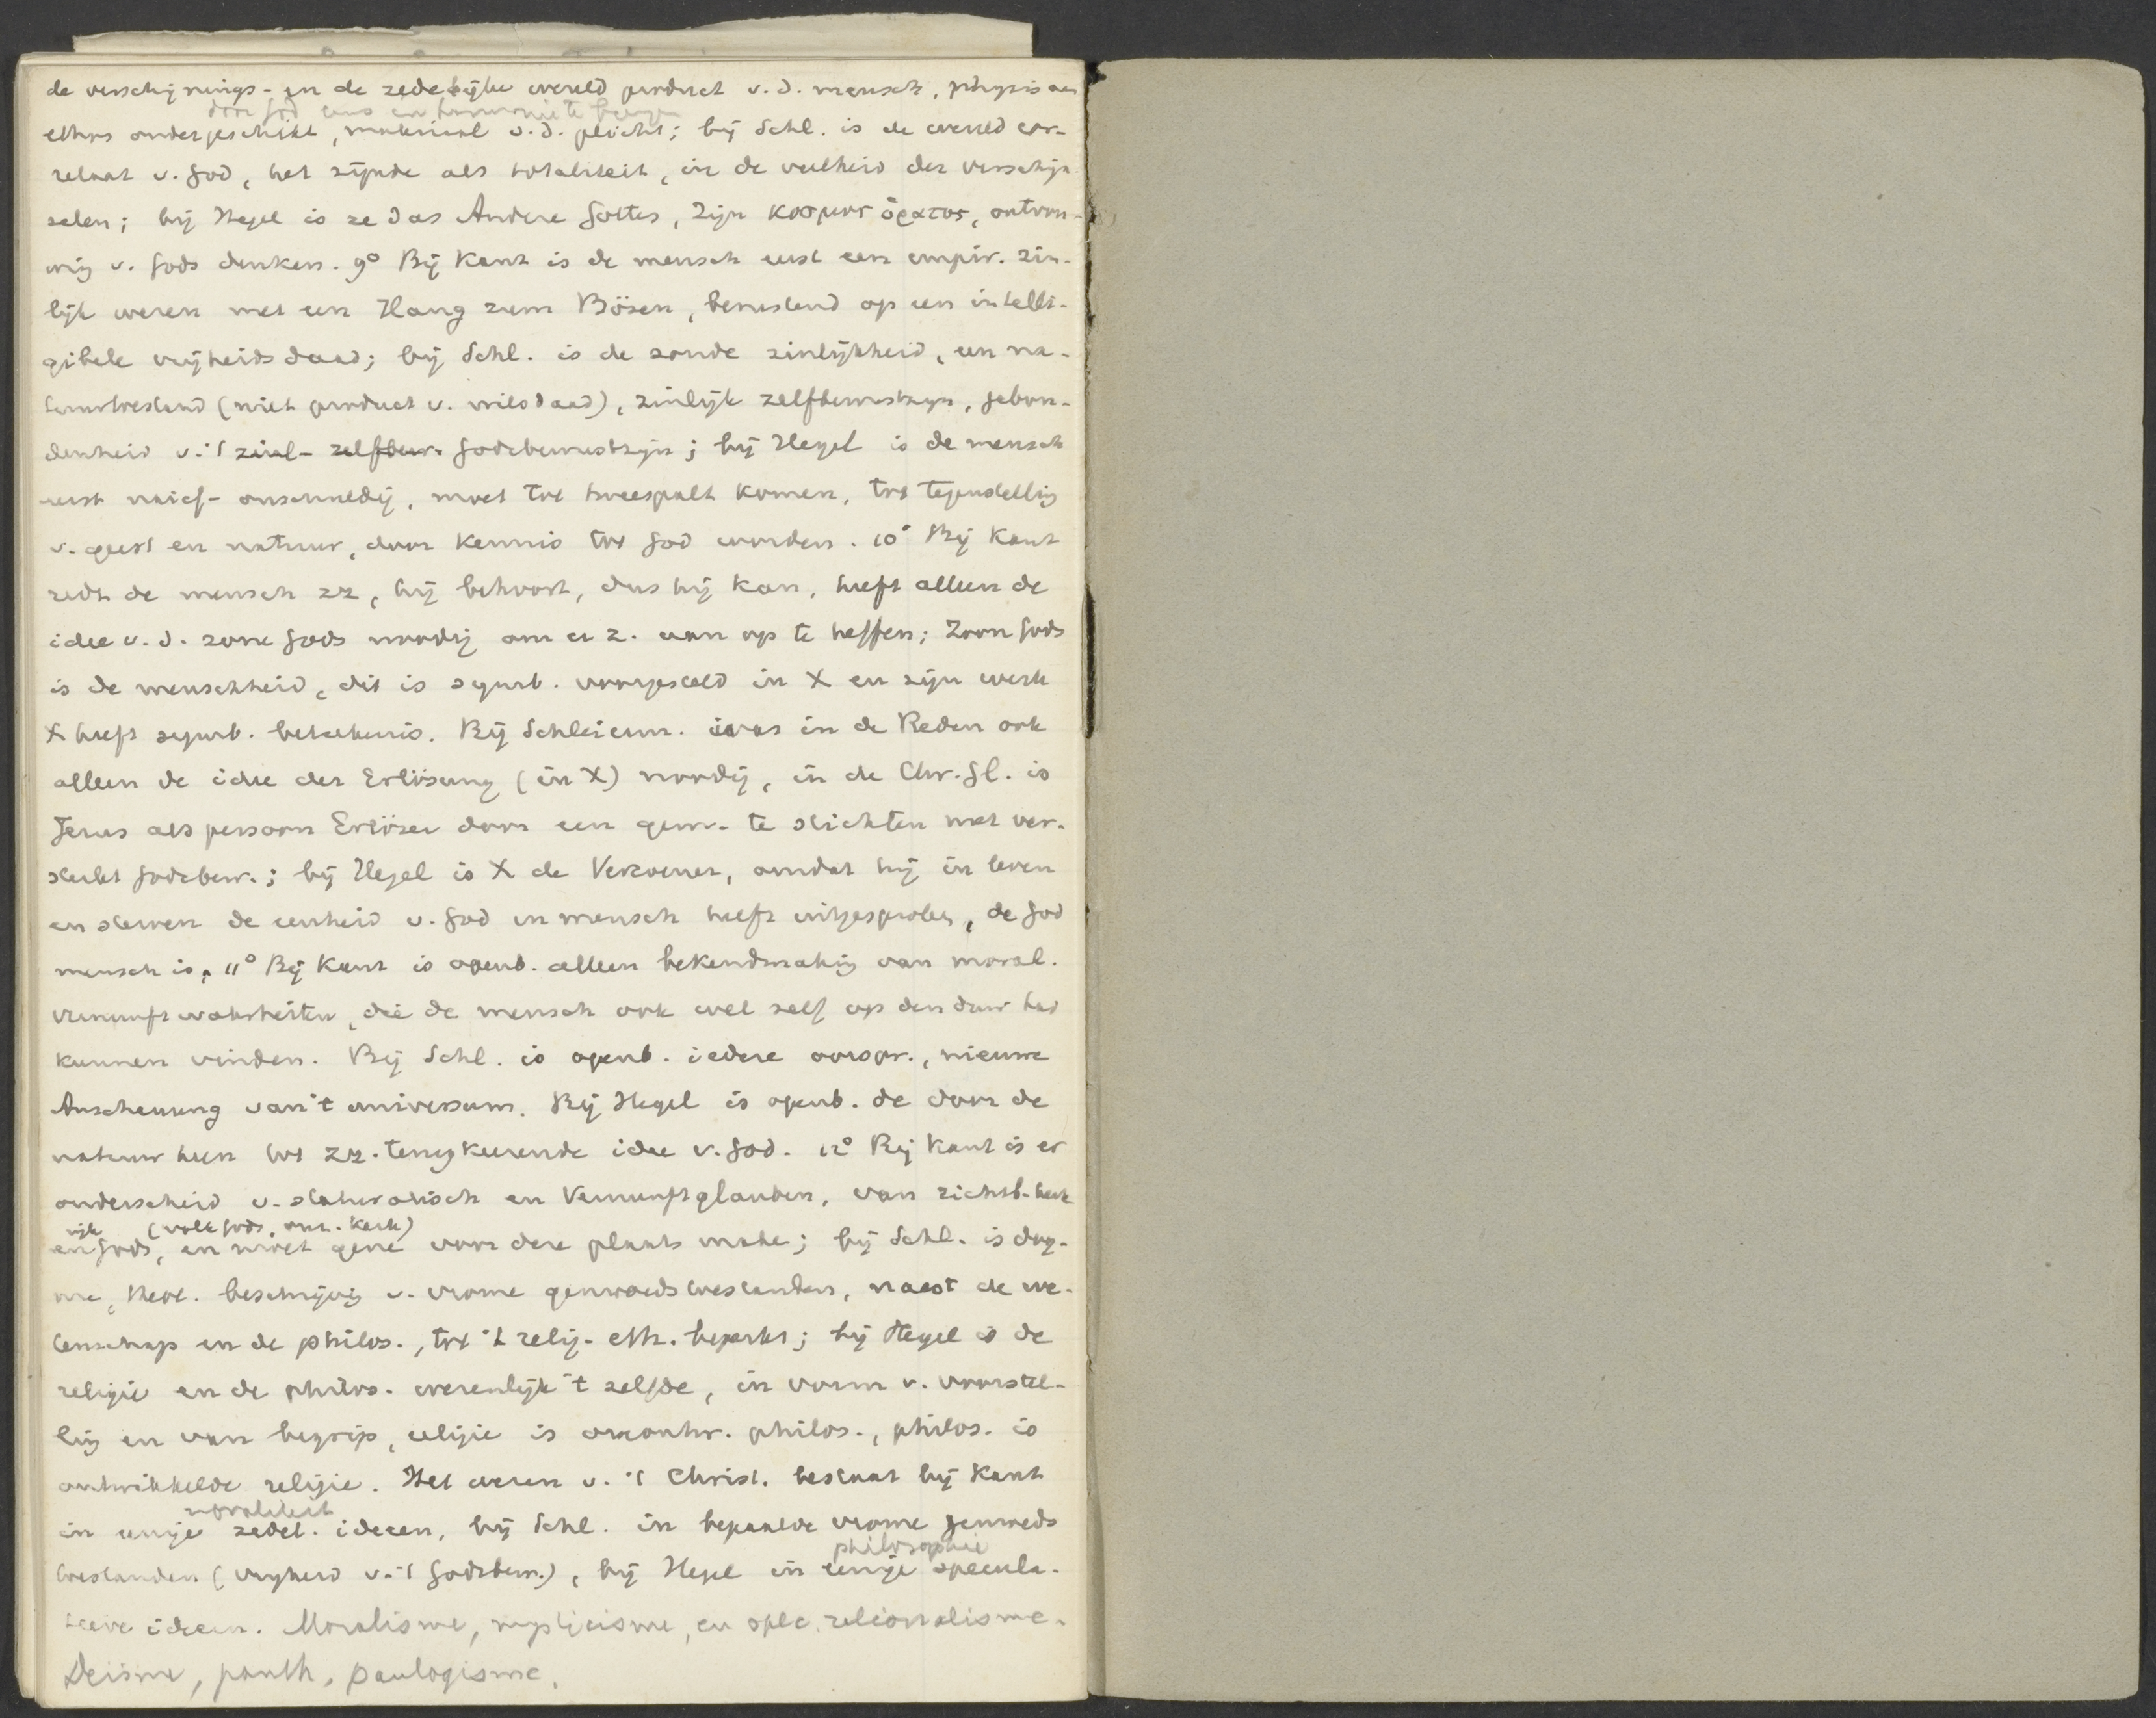 de verschijnings- en de zedelijke wereld product v. d. mensch, physis aan
door God eens en harmonie te
ethos ondergeschikt, materiaal v. d. plicht; bij Schl. is de wereld cor-
relaat v. God, het zijnde als totaliteit, in de veelheid der verschijn-
selen; bij Hegel is ze das Andere Gottes, Zijn κοσμος ὁρατος, ontvou-
wing v. Gods denken. 9° Bij Kant is de mensch eerst een empir. zin-
lijk wezen met een Hang zum Bösen, berustend op een intelli-
gibele vrijheidsdaad; bij Schl. is de zonde zinlijkheid, een na-
tuurtoestand (niet product v. wilsdaad), zinlijk zelfbewustzijn, gebon-
denheid v. 't Godsbewustzijn; bij Hegel is de mensch
eerst naief-onschuldig, moet tot tweespalt komen, tot tegenstelling
v. geest en natuur, door kennis tot God worden. 10° Bij Kant
redt de mensch zz, hij behoort, dus hij kan, heeft alleen de
idee v. d. zone Gods noodig om er z. aan op te heffen; Zoon Gods
is de menschheid, dit is symb. voorgesteld in X en zijn werk
X heeft symb. beteekenis. Bij Schleierm. was in de Reden ook
alleen de idee der Erlösung (in X) noodig, in de Chr. Gl. is
Jezus als persoon Erlöser door een gem. te stichten met ver-
sterkt Godsbew.; bij Hegel is X de Verzoener, omdat hij in leven
en sterven de eenheid v. God en mensch heeft uitgesproken, de God
mensch is. 11° Bij Kant is openb. alleen bekendmaking van moral.
vernunftwahrheiten, die de mensch ook wel zelf op den duur had
kunnen vinden. Bij Schl. is openb. iedere oorspr., nieuwe
Anschauung van 't universum. Bij Hegel is openb. de door de
natuur heen tot zz. terugkeerende idee v. God. 12° Bij Kant is er
onderscheid v. statutarisch en Vernunftglauben, van zichtb. kerk
rijk (volk Gods, onz. kerk)
en Gods, en moet gene voor deze plaats make; bij Schl. is dog-
me, theol. beschrijving v. vrome gemoedstoestanden, naast de we-
tenschap en de philos., tot 't relig.-eth. beperkt; bij Hegel is de
religie en de philos. wezenlijk 't zelfde, in vorm v. voorstel-
ling en van begrip, religie is onontw. philos., philos. is
ontwikkelde religie. Het wezen v. 't Christ. bestaat bij Kant
moraliteit
in eenige zedel. ideeen, bij Schl. in bepaalde vrome gemoeds
philosophie
toestanden (vrijheid v. 't Godsbew.), bij Hegel in eenige specula-
tieve ideeen. Moralisme, mysticisme, en spec. rationalisme.
Deisme, panth, panlogisme.